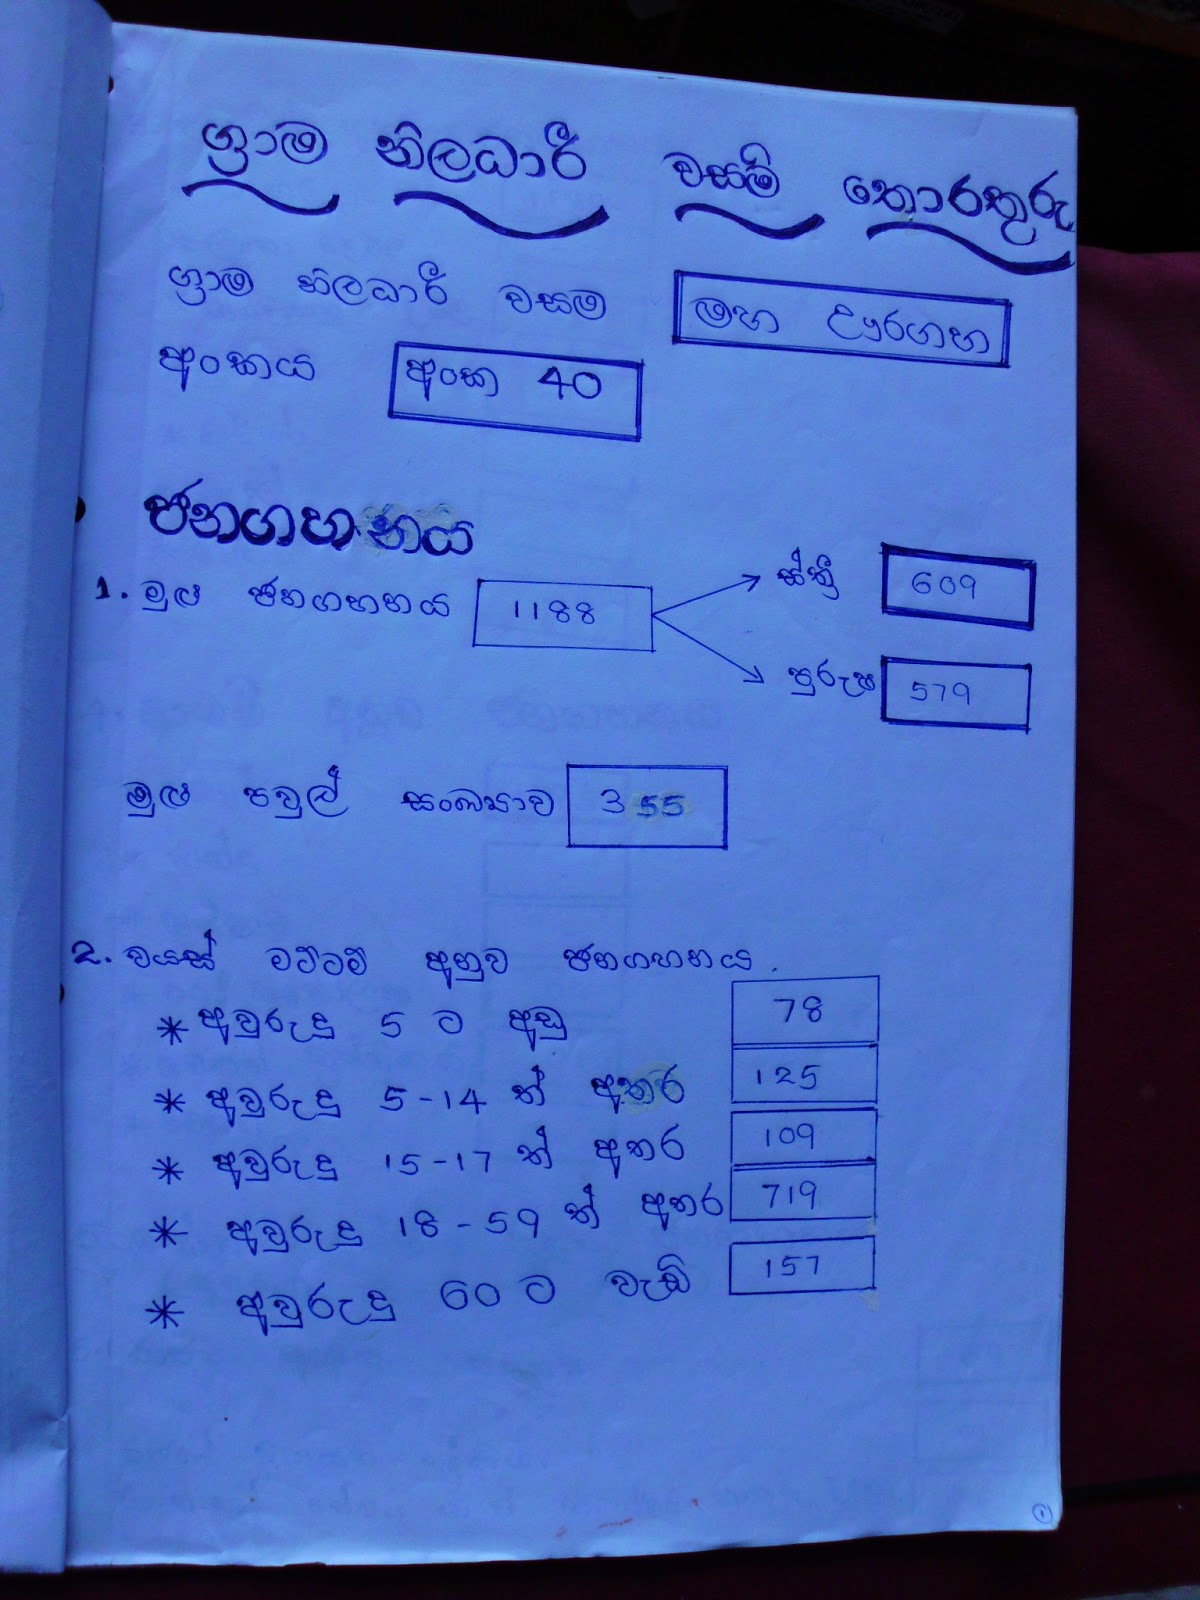 ග්‍රාම නිලධාරී වසම් තොරතුරු
ග්‍රාම නිලධාරී වසම මහ ඌරගහ
අංකය අංක 40
ජනගහනය
1. මුළු ජනගහනය 1188
ස්ත්‍රී 609
පුරුෂ 579
මුළු පවුල් සංඛ්‍යාව 355
2. වයස් මට්ටම් අනුව ජනගහනය.
* අවුරුදු 5 ට අඩු 78
* අවුරුදු 5-14 ත් අතර 125
* අවුරුදු 15-17 ත් අතර 109
* අවුරුදු 18-59 ත් අතර 719
* අවුරුදු 60 ට වැඩි 157
1